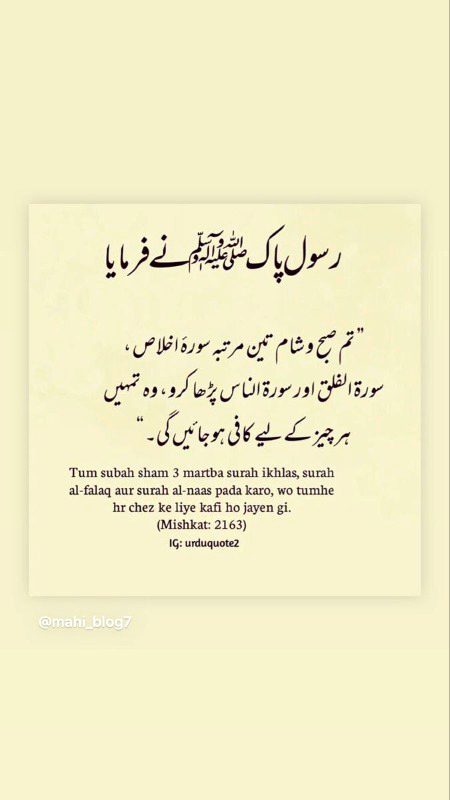 رسول پاک ﷺ نے فرمایا
”تم صبح و شام تین مرتبہ سورۂ اخلاص،
سورۃ الفلق اور سورۃ الناس پڑھا کرو، وہ تمہیں
ہر چیز کے لیے کافی ہو جائیں گی۔“
Tum subah sham 3 martba surah ikhlas, surah
al-falaq aur surah al-naas pada karo, wo tumhe
hr chez ke liye kafi ho jayen gi.
(Mishkat: 2163)
IG: urduquote2
@mahi_blog7